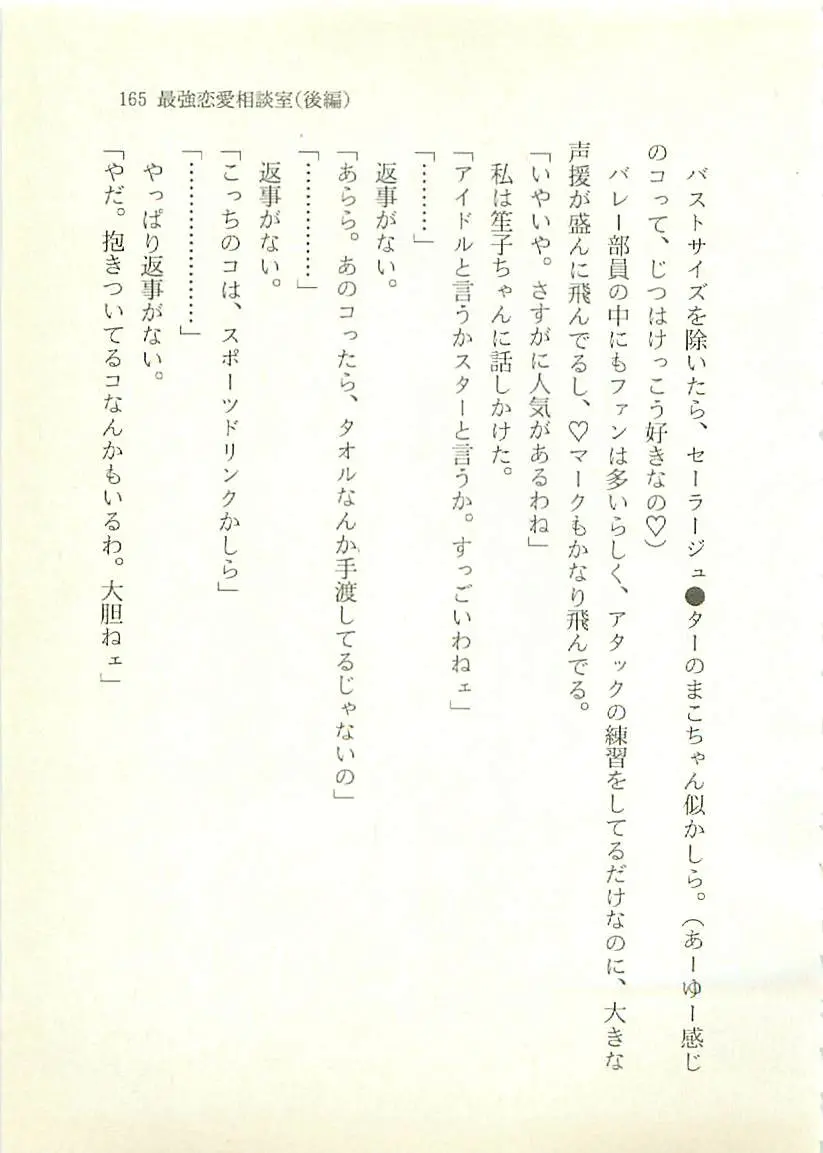 165 最強恋愛相談室(後編)
バストサイズを除いたら、セーラージュ●ターのまこちゃん似かしら。(あーゆー感じ
のコって、じつはけっこう好きなの♡)
バレー部員の中にもファンは多いらしく、アタックの練習をしてるだけなのに、大きな
声援が盛んに飛んでるし、♡マークもかなり飛んでる。
「いやいや。さすがに人気があるわね」
私は笙子ちゃんに話しかけた。
「アイドルと言うかスターと言うか。すっごいわねェ」
「………」
返事がない。
「あらら。あのコったら、タオルなんか手渡してるじゃないの」
「……………」
返事がない。
「こっちのコは、スポーツドリンクかしら」
「…………………」
やっぱり返事がない。
「やだ。抱きついてるコなんかもいるわ。大胆ねェ」